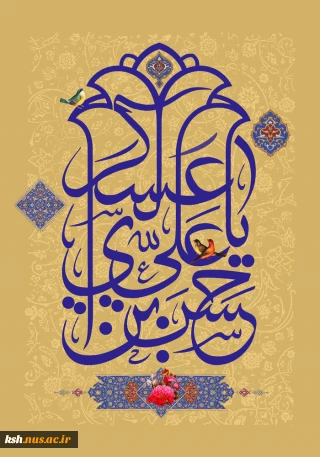 يا حسن بن علي العسكري
ksh.nus.ac.ir